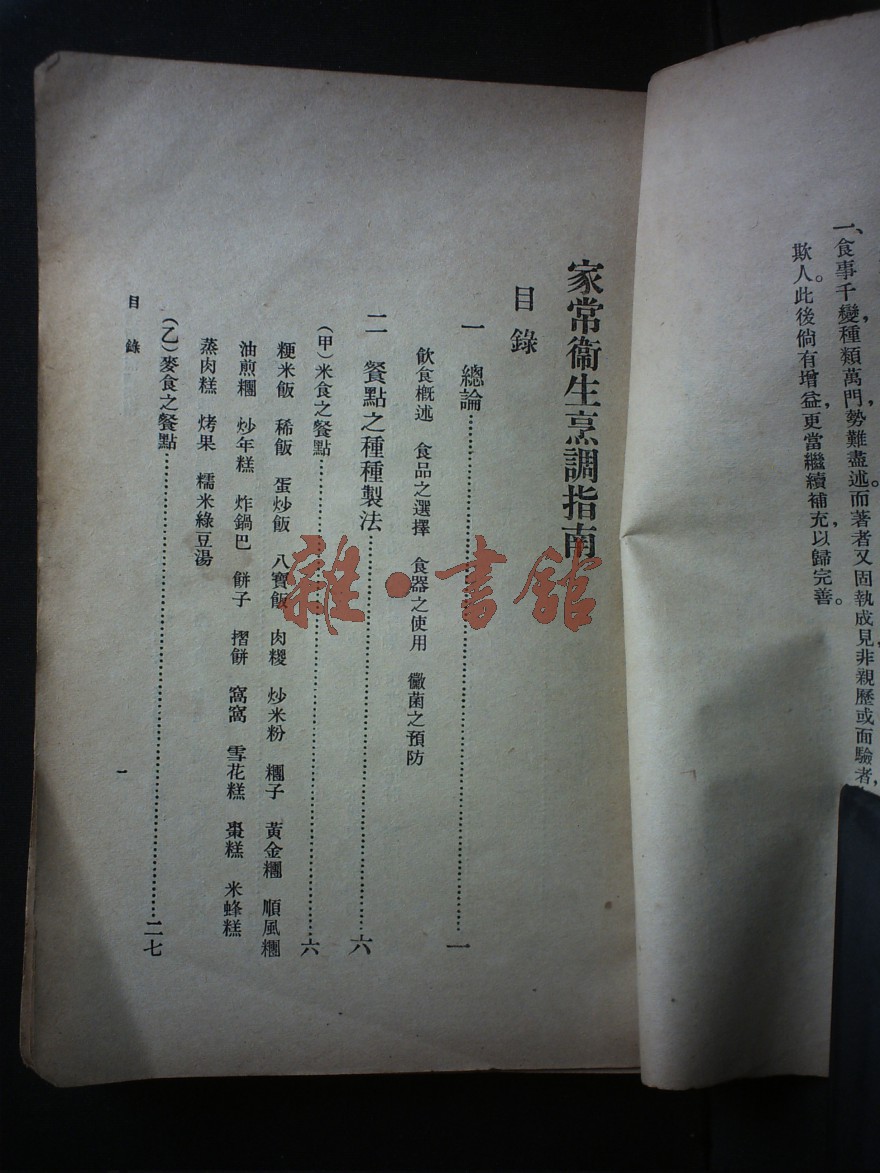 一、食事千變，種類萬門，勢難盡述。而著者又固執成見，非親歷或面驗者，
欺人。此後倘有增益，更當繼續補充，以歸完善。
家常衞生烹調指南
目錄
一 總論……一
飲食概述 食品之選擇 食器之使用 黴菌之預防
二 餐點之種種製法……六
（甲）米食之餐點……六
粳米飯 稀飯 蛋炒飯 八寶飯 肉糉 炒米粉 糰子 黃金糰 順風糰
油煎糰 炒年糕 炸鍋巴 餅子 摺餅 窩窩 雪花糕 棗糕 米蜂糕
蒸肉糕 烤果 糯米綠豆湯
（乙）麥食之餐點……二七
目錄
一
雜·書舘